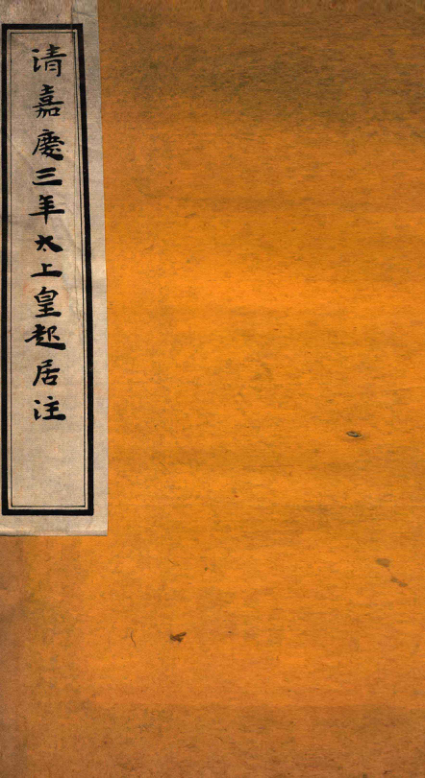 清嘉慶三年太上皇起居注